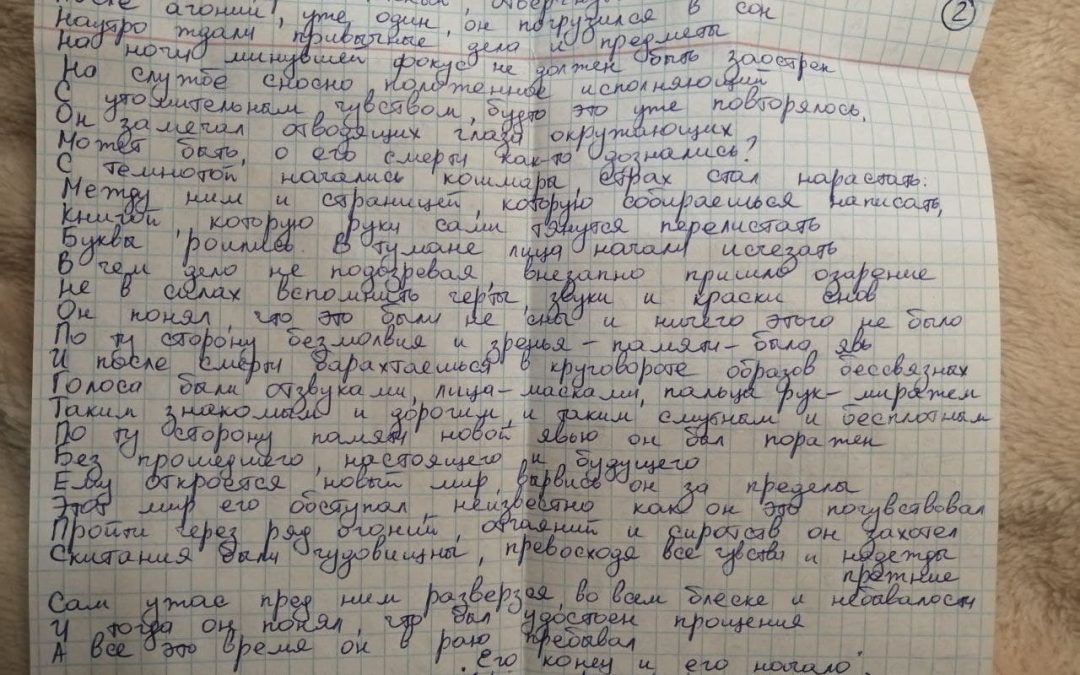 После агонии, уже один, он погрузился в сон
2
Наутро ждали привычные дела и предметы
На ночи минувшей фокус не должен быть заострен
На службе сносно положенное исполняющий
С утомительным чувством, будто это уже повторялось,
Он замечал отводящих глаза окружающих
Может быть, о его смерти как-то дознались?
С темнотой начались кошмары, страх стал нарастать:
Между ним и страницей, которую собираешься написать,
Книгой, которую руки сами тянутся перелистать
Буквы роились. В тумане лица начали исчезать
В чем дело не подозревая, внезапно пришло озарение
Не в силах вспомнить черты, звуки и краски снов
Он понял, что это были не сны и ничего этого не было
По ту сторону безмолвия и зренья - памяти - была явь
И после смерти барахтаешься в круговороте образов бессвязных
Голоса были отзвуками, лица - масками, пальцы рук - миражем
Таким знакомым и дорогим, и таким смутным и бесплотным
По ту сторону памяти новой явью он был поражен
Без прошедшего, настоящего и будущего
Ему откроется новый мир, вырвись он за пределы
Этот мир его обступал, неизвестно как он это почувствовал
Пройти через ряд агоний, отчаяний и сиротств он захотел
Скитания были чудовищны, превосходя все чувства и надежды
прежние
Сам ужас пред ним разверзся, во всем блеске и небывалости
И тогда он понял, что был удостоен прощения
А все это время он в раю пребывал
"Его конец и его начало".